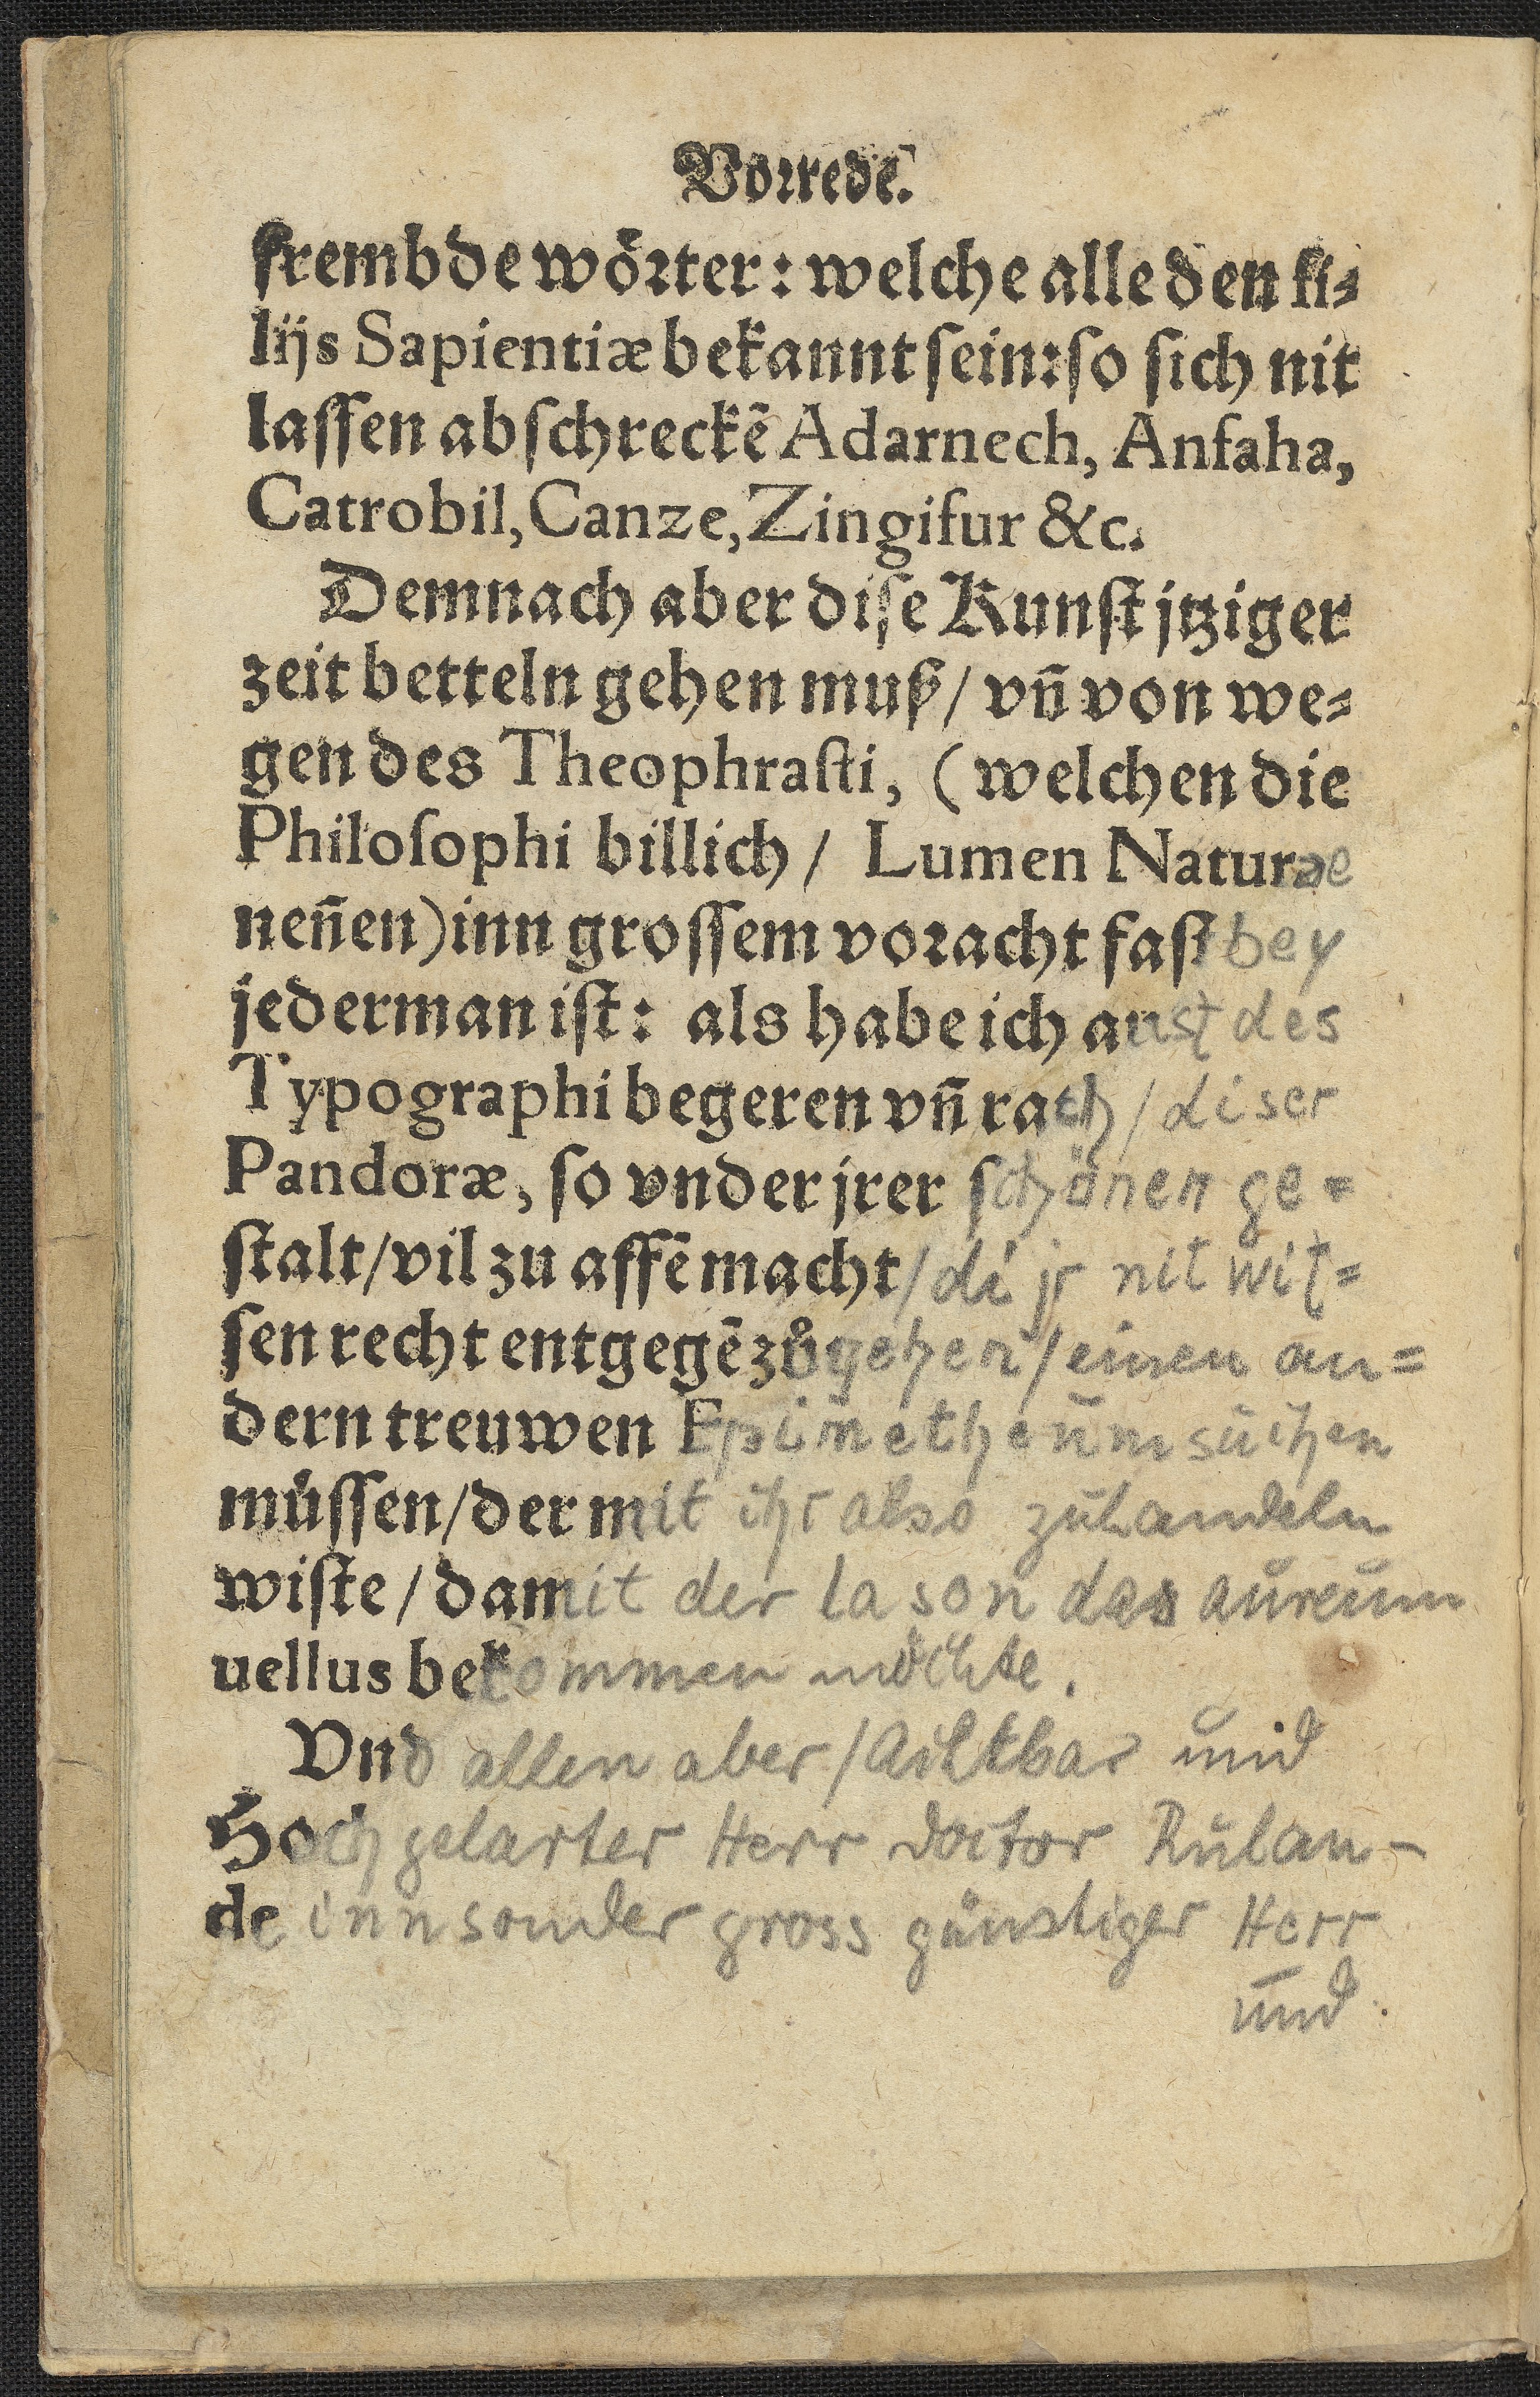 Vorrede.
frembde wörter: welche alle den fi⸗
lijs Sapientiæ bekannt sein: so sich nit
lassen abschreckẽ Adarnech, Anfaha,
Catrobil, Canze, Zingifur &c.
Demnach aber dise Kunst jtziger
zeit betteln gehen muß / vñ von we⸗
gen des Theophrasti, (welchen die
Philosophi billich / Lumen Naturae
neñen) inn grossem voracht fast bey
jederman ist: als habe ich aust des
Typographi begeren vñ rath / diser
Pandoræ, so vnder jrer schönen ge=
stalt / vil zu affẽ macht / di jr nit wis=
sen recht entgegẽ zůgehen / einen an=
dern treuwen Epimetheum suchen
müssen / der mit ihr also zuhandeln
wiste / damit der Iason das aureum
uellus bekommen möchte.
Vnd allen aber / Achtbar und
Hochgelarter Herr doctor Rulan-
de innsonder gross günstiger Herr
und